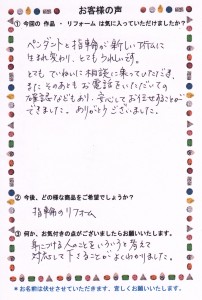 お客様の声
① 今回の 作品 ・ リフォーム は気に入っていただけましたか？
ペンダントと指輪が新しい形に
生まれ変わり、とてもうれしいです。
とてもていねいに相談に乗っていただき、
またそのあともお電話をいただいての
確認などもあり、安心してお任せすることが
できました。ありがとうございました。
② 今後、どの様な商品をご希望でしょうか？
指輪のリフォーム
③ 何か、お気付きの点がございましたらお聞かせ下さい。
身につける人のことをいろいろ考えて
対応して下さることがよくわかりました。
＊ お名前は伏せさせていただきます、宜しくお願いいたします。